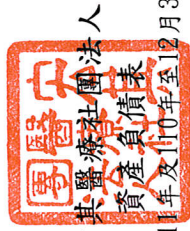 其醫療社團法人
資產負債表
11年及110年至12月3